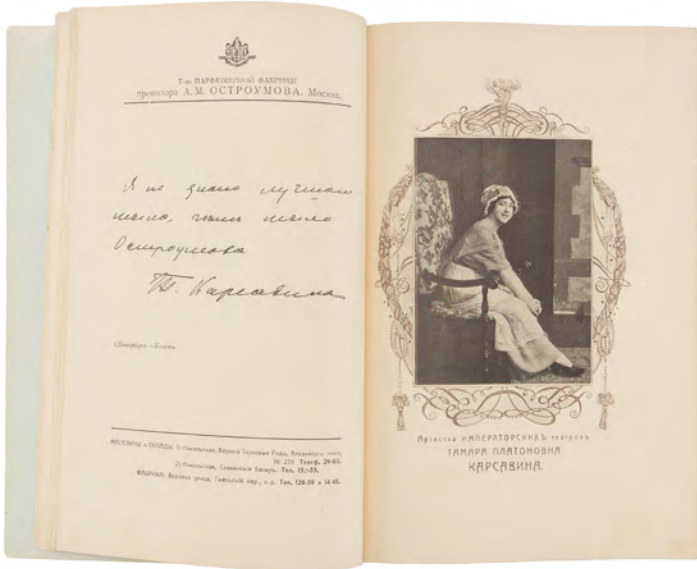 Т-во ПАРФЮМЕРНОЙ ФАБРИКИ
провизора А.М. ОСТРОУМОВА. Москва.
Я не знаю лучшаго
мыла, чемъ мыло
Остроумова
Т. Карсавина
С.Петербургъ.—Балетъ.
МАГАЗИНЫ и СКЛАДЫ: 1) Никольская, Верхніе Торговые Ряды,
№ 259 Телеф. 24-63.
2) Никольская, Славянскій Базаръ. Тел.
ФАБРИКА: улица, пер., с. д. Тел. 126-39 и 14-45.
Артистка ИМПЕРАТОРСКИХЪ театровъ
ТАМАРА ПЛАТОНОВНА
КАРСАВИНА.